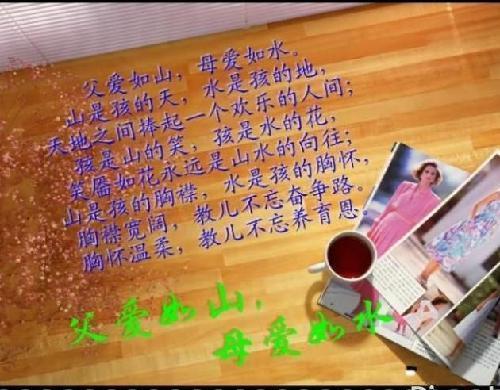 父爱如山，母爱如水。
山是孩的天，水是孩的地，
天地之间捧起一个欢乐的人间；
孩是山的笑，孩是水的花，
笑靥如花永远是山水的向往；
山是孩的胸襟，水是孩的胸怀，
胸襟宽阔，教儿不忘奋争路。
胸怀温柔，教儿不忘养育恩。
父爱如山，
母爱如水